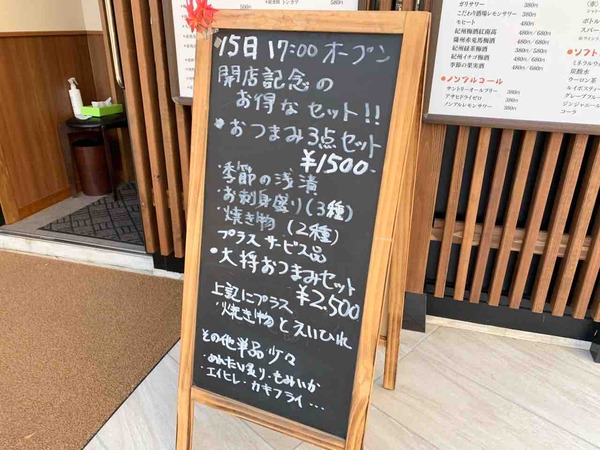 15日 17:00 オープン
開店記念の
お得なセット!!
・おつまみ3点セット
¥1500-
・季節の浅漬
・お刺身盛り(3種)
・焼き物 (2種)
プラスサービス品
・大将おつまみセット
¥2,500
上記にプラス
・焼き物とえいひれ
その他単品少々
・エイヒレ・カキフライ…
ガリサワー 380円
こだわり酒場レモンサワー 380円
モヒート
紀州梅酒紅南高 480円/680円
薩州赤兎馬梅酒 480円/680円
紀州緑茶梅酒 480円/680円
紀州イチゴ梅酒 480円/680円
季節の果実酒 480円/580円
・ノンアルコール
サントリーオールフリー 380円
アサヒドライゼロ 380円
ノンアルレモンサワー 380円
・ソフト
ミネラルウ
炭酸水
ウーロン茶
ルイボスティー
グレープフルー
ジンジャエール
コーラ